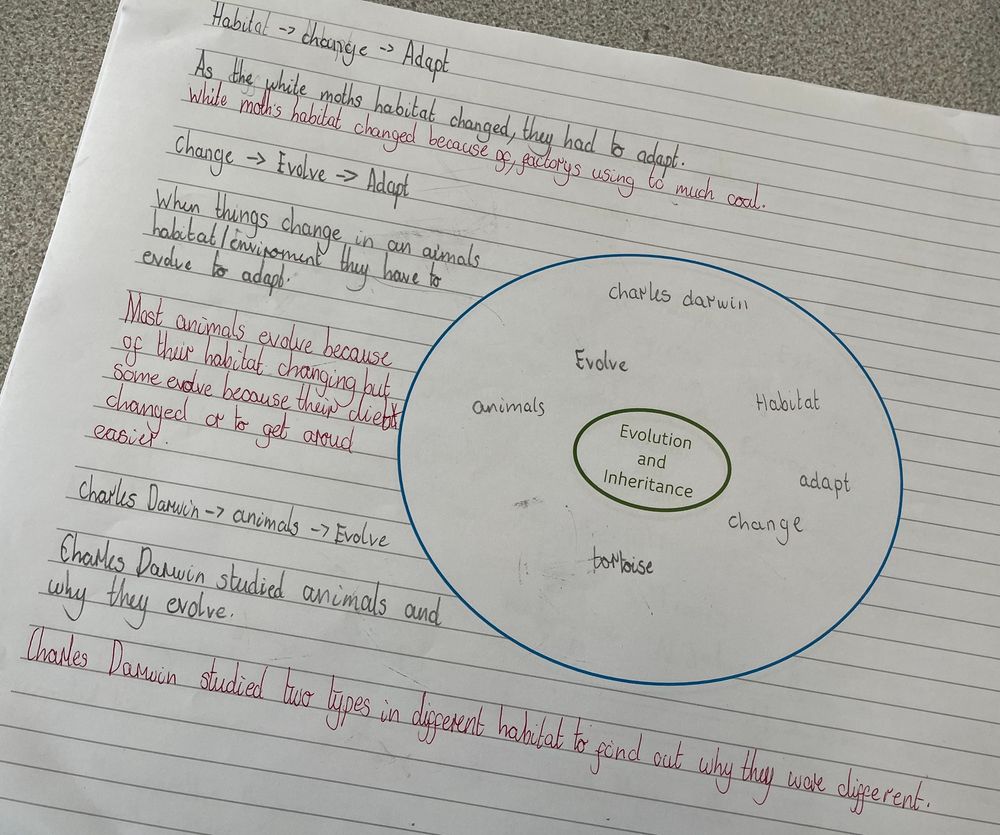 Habitat -> change -> Adapt
As the white moths habitat changed, they had to adapt.
White moth's habitat changed because of, factorys using to much coal.
Change -> Evolve -> Adapt
When things change in an aimals
habitat/enviroment they have to
evolve to adapt.
Most animals evolve because
of their habitat changing but
some evolve because their diet
changed or to get aroud
easier.
Charles Darwin -> animals -> Evolve
Charles Darwin studied animals and
why they evolve.
Charles Darwin studied two types in different habitat to find out why they were different.
charles darwin
Evolve
animals
Habitat
Evolution
and
Inheritance
adapt
change
tortoise